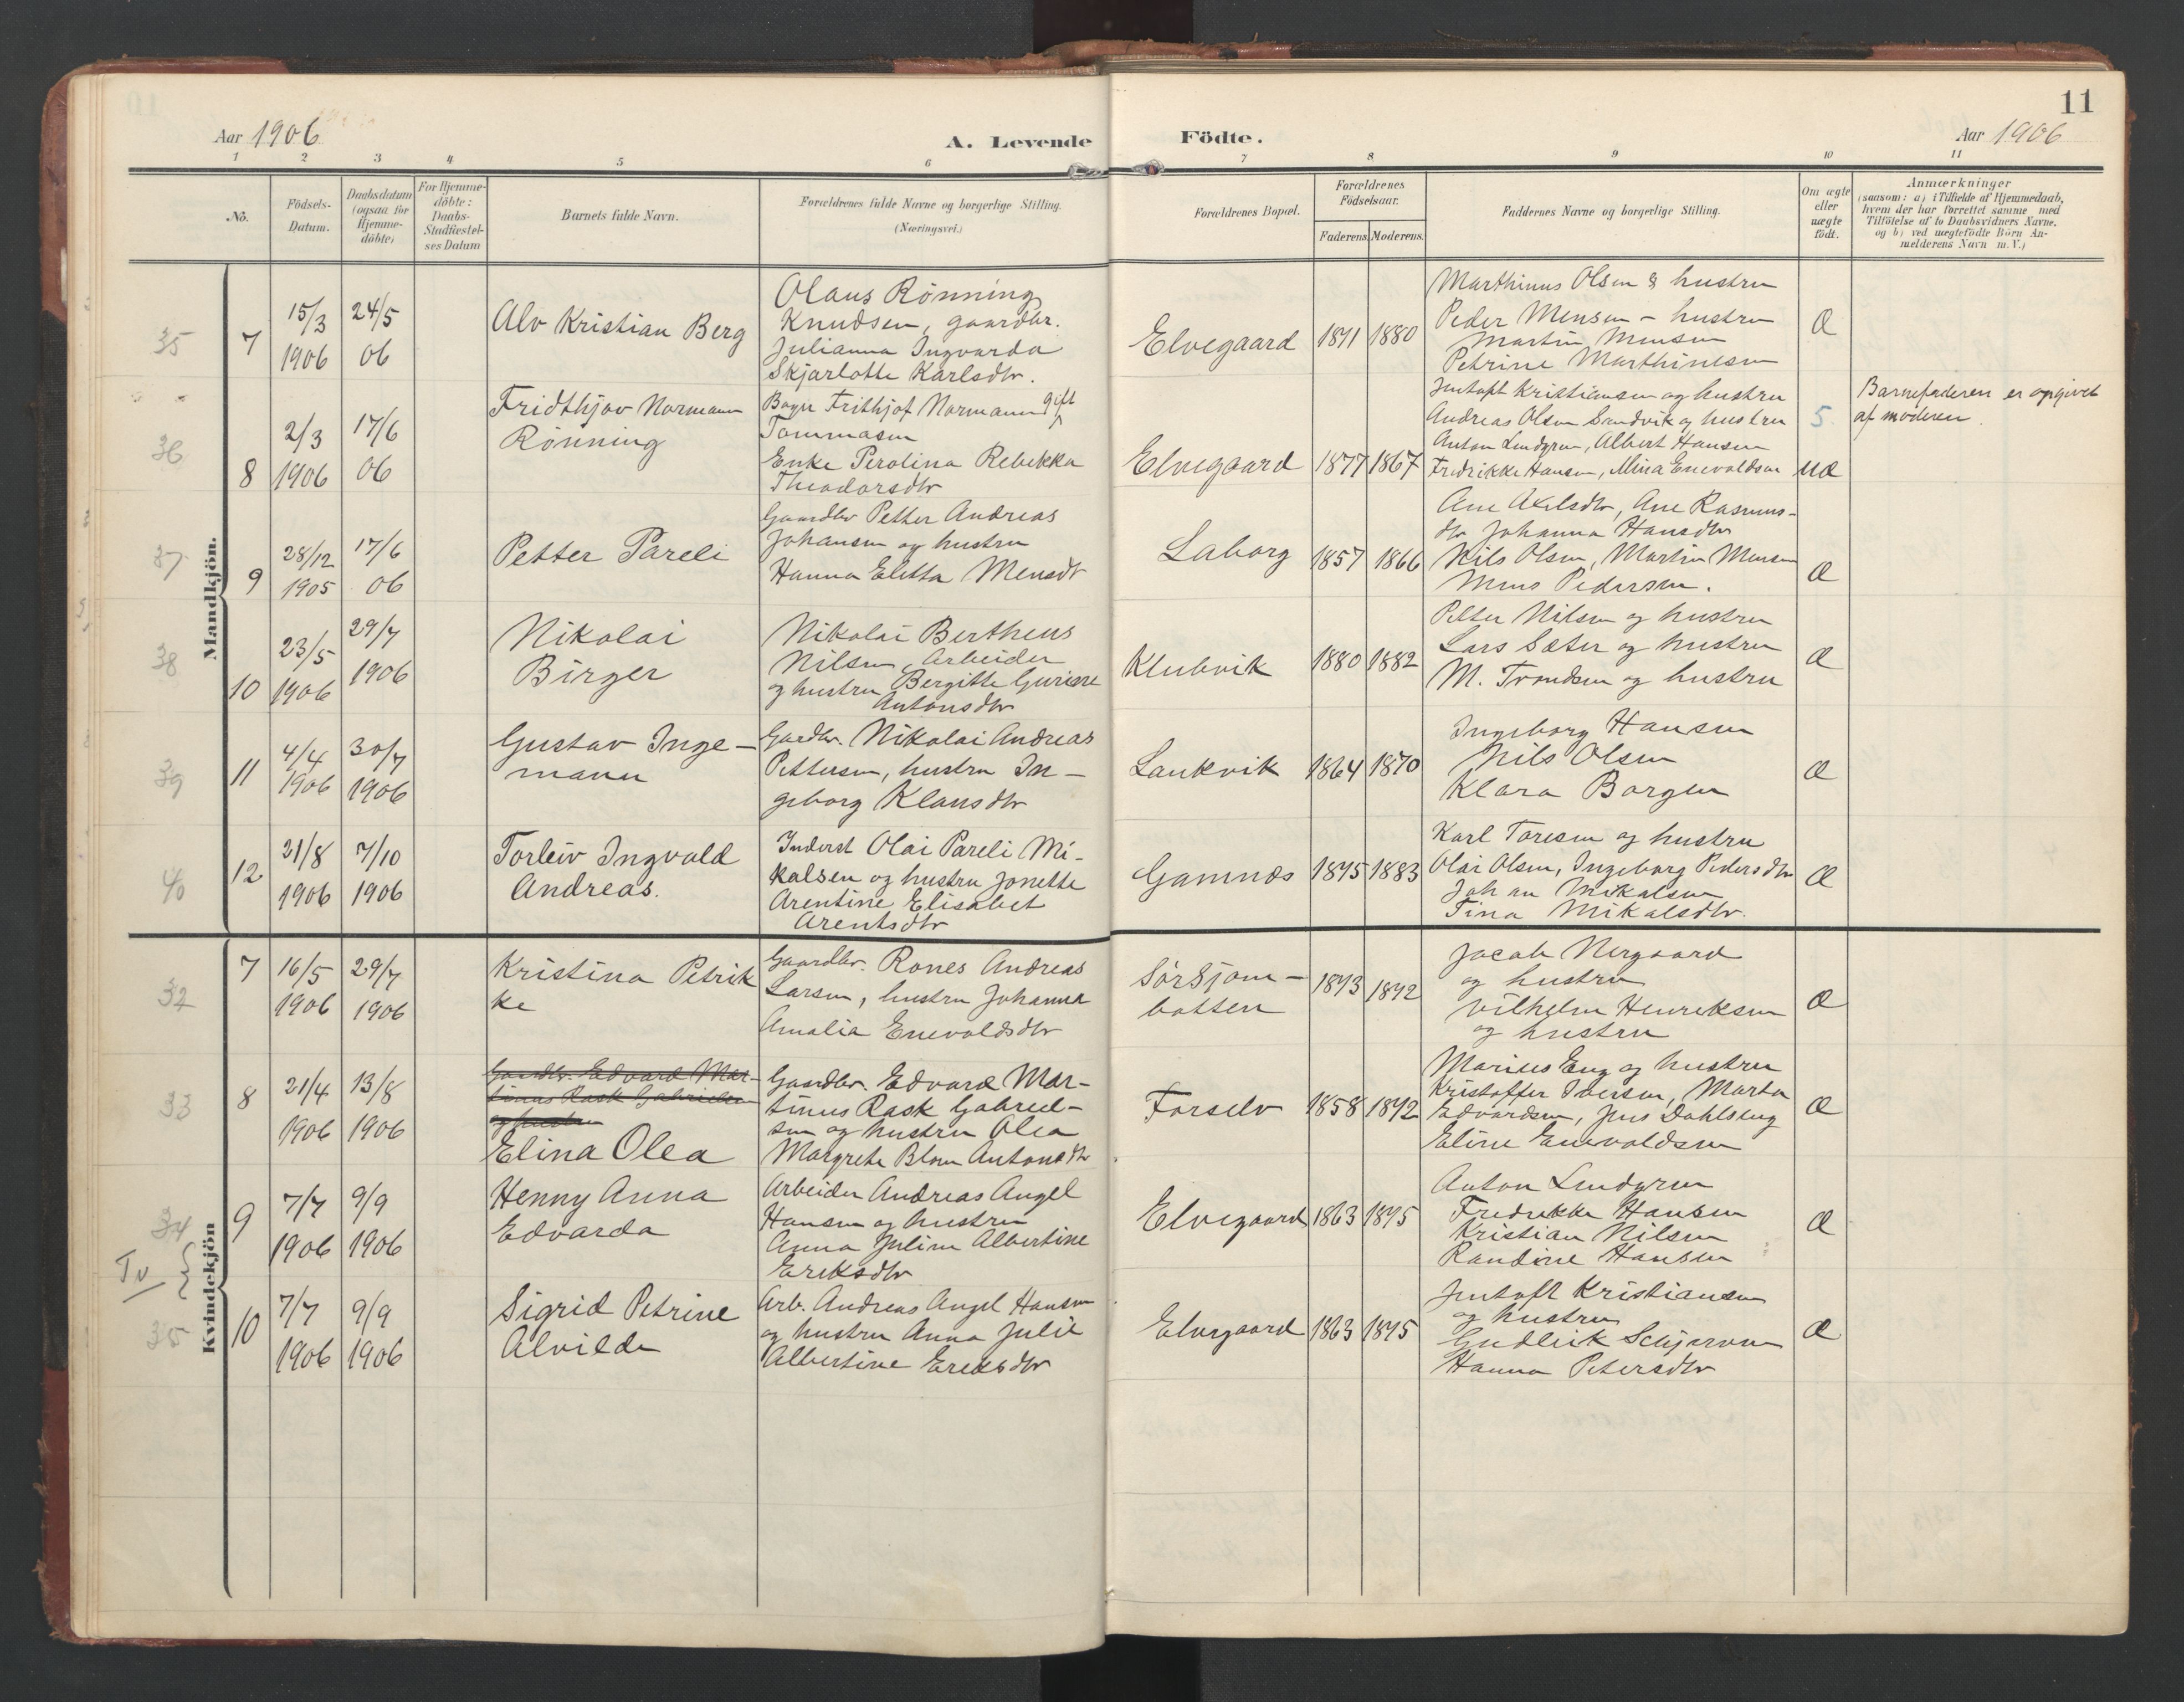 11
Aar 1906
A. Levende Födte.
Aar 1906
1 2 3 4 5 6 7 8 9 10 11
No.
Födsels-
Datum.
Daabsdatum
(ogsaa for
Hjemme-
döbte)
For Hjemme-
döbte:
Daabs-
Stadfæstel-
ses Datum
Barnets fulde Navn.
Forældrenes fulde Navne og borgerlige Stilling.
(Næringsvei.)
Forældrenes Bopæl.
Forældrenes
Födselsaar.
Faderens. Moderens.
Faddernes Navne og borgerlige Stilling.
Om ægte
eller
uægte
födt.
Anmærkninger
(saasom: a) i Tilfælde af Hjemmedaab,
hvem der har forrettet samme med
Tilföielse af to Daabsvidners Navne.
og b) ved uægtefödte Börn An-
melderens Navn m. V.)
Mandkjön.
35
7
15/3
1906
24/5
06
Alv Kristian Berg
Olaus Rönning
Knudsen, gaardbr.
Julianna Ingvarda
Skjarlotte Karlsdtr.
Elvegaard
1871
1880
Marthinus Olsen & hustru
Peder Mensen - hustru
Martin Mensen
Petrine Marthinesen
Æ
36
8
2/3
1906
17/6
06
Fridthjov Normann
Rönning
Frithjof Normann gift
Tommasen
Enke Perolina Rebekka
Theodorsdtr
Elvegaard
1877
1867
Jentoft Kristiansen og hustru
Andreas Olsen Sandvik og hustru
Anton Lindgren, Albert Hansen
Fredrikke Hansen, Mina Enevoldsen
5
uæ
Barnefaderen er opgivet
af moderen.
37
9
28/12
1905
17/6
06
Petter Pareli
Gaardbr Petter Andreas
Johansen og hustru
Hanna Eletta Mensdtr
Laborg
1857
1866
Ane Axelsdtr, Ane Rasmus-
dtr Johanna Hansdtr
Nils Olsen, Martin Mensen
Mens Pedersen.
Æ
38
10
23/5
1906
29/7
1906
Nikolai
Birger
Nikolai Bertheus
Nilsen, Arbeider
og hustru Bergitte Gurine
Antonsdtr
Klubvik
1880
1882
Petter Nilsen og hustru
Lars Sæter og hustru
M. Trondsen og hustru
Æ
39
11
4/4
1906
30/7
1906
Gustav Inge-
mann
Gaardbr. Nikolai Andreas
Pettersen, hustru In-
geborg Klausdtr
Laukvik
1864
1870
Ingeborg Hansen
Nils Olsen
Klara Borgen
Æ
40
12
21/8
1906
7/10
1906
Torleiv Ingvald
Andreas.
Inderst Olai Pareli Mi-
kalsen og hustru Jonette
Arentine Elisabet
Arentsdtr
Gamnes
1875
1883
Karl Toresen og hustru
Olai Olsen, Ingeborg Pedersdtr
Johan Mikalsen
Tina Mikalsdtr.
Æ
Kvindekjön
32
7
16/5
1906
29/7
1906
Kristina Petrik
ke
Gaardbr. Rones Andreas
Larsen, hustru Johanna
Amalia Enevoldsdtr
Sörsjom-
botten
1873
1872
Jacob Nergaard
og hustru
Vilhelm Henriksen
og hustru
Æ
33
8
21/4
1906
13/8
1906
Gaardbr. Edvard Mar-
tinus Rask Gabrielsen
og hustru
Elina Olea
Gaardbr. Edvard Mar-
tinus Rask Gabriel-
sen og hustru Olea
Margrete Blom Antonsdtr
Forselv
1858
1872
Marius Eng og hustru
Kristoffer Iversen, Marta
Edvardsen, Jens Dahlseng
Eline Enevoldsen
Æ
34
9
7/7
1906
9/9
1906
Henny Anna
Edvarda
Arbeider Andreas Angel
Hansen og hustru
Anna Juline Albertine
Eriksdtr
Elvegaard
1863
1875
Anton Lindgren
Fredrikke Hansen
Kristian Nilsen
Randine Hansen
Æ
Tv
35
10
7/7
1906
9/9
1906
Sigrid Petrine
Alvilde
Arb. Andreas Angel Hansen
og hustru Anna Julie
Albertine Eriksdtr
Elvegaard
1863
1875
Jentoft Kristiansen
og hustru
Gudleik
Hanna Petersdtr
Æ